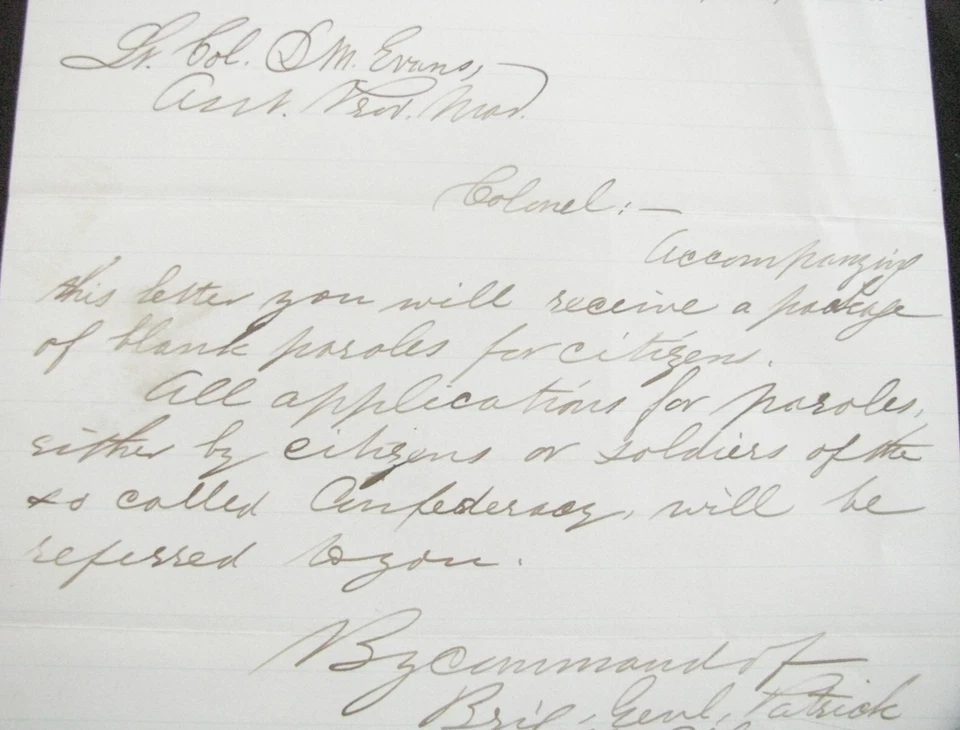 Lt. Col. D M. Evans,
Asst. Prov. Mar.
Colonel:—
Accompanying
this letter you will receive a package
of blank paroles for citizens.
All applications for paroles,
either by citizens or soldiers of the
so called Confederacy, will be
referred to you.
By command of
Brig. Genl. Patrick